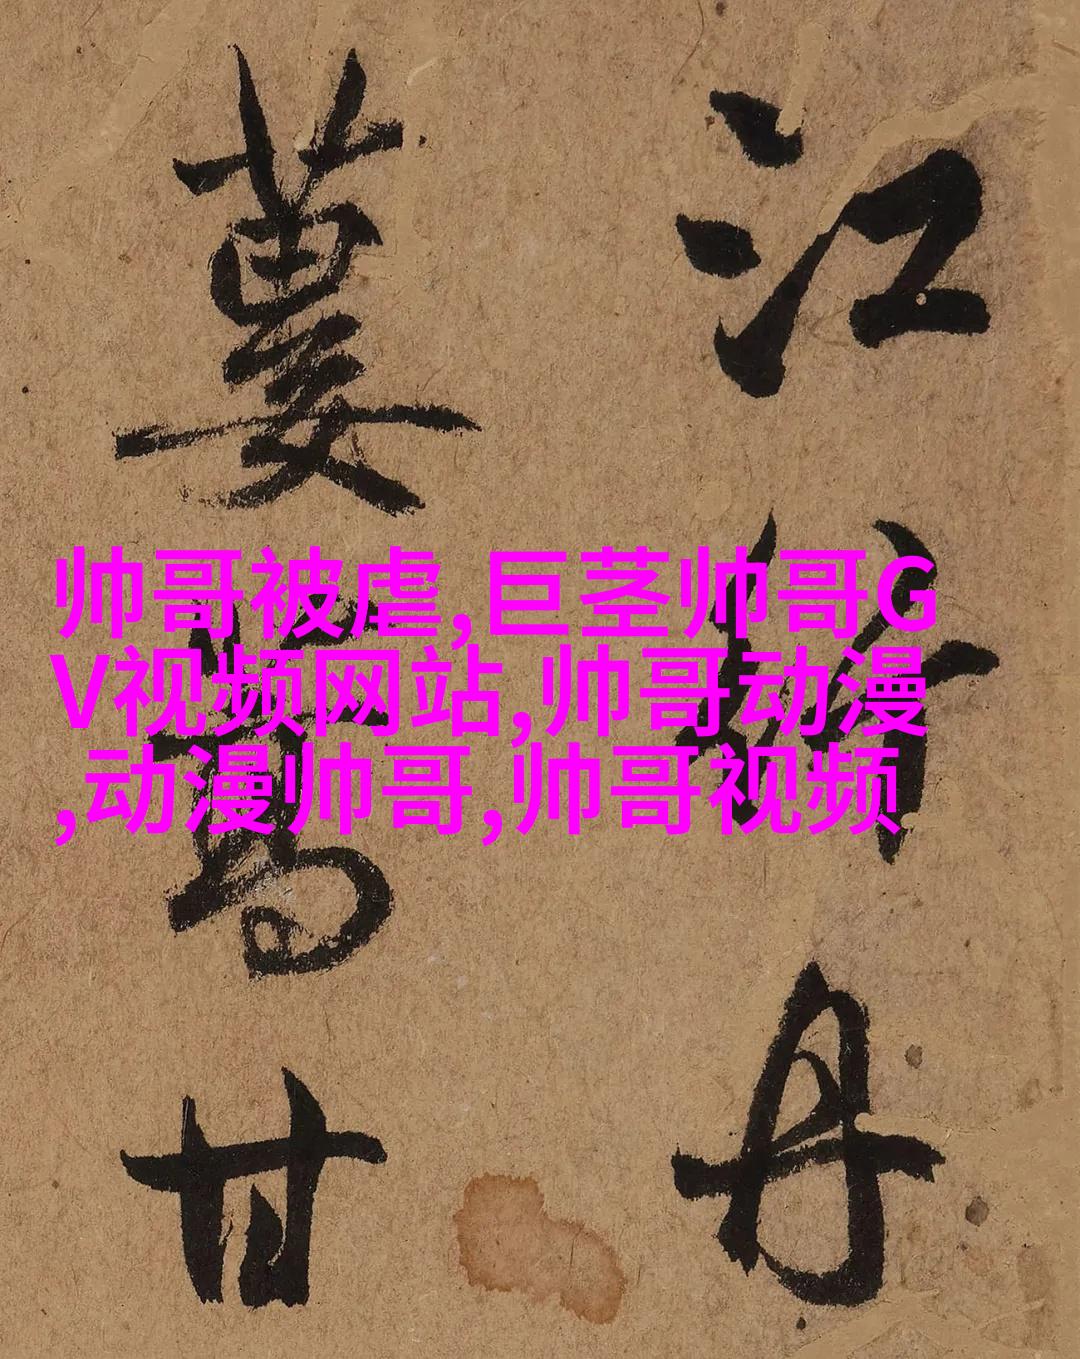 帅哥被虐,巨茎帅哥G
V视频网站,帅哥动漫
,动漫帅哥,帅哥视频
江 丹
蔞蒿甘